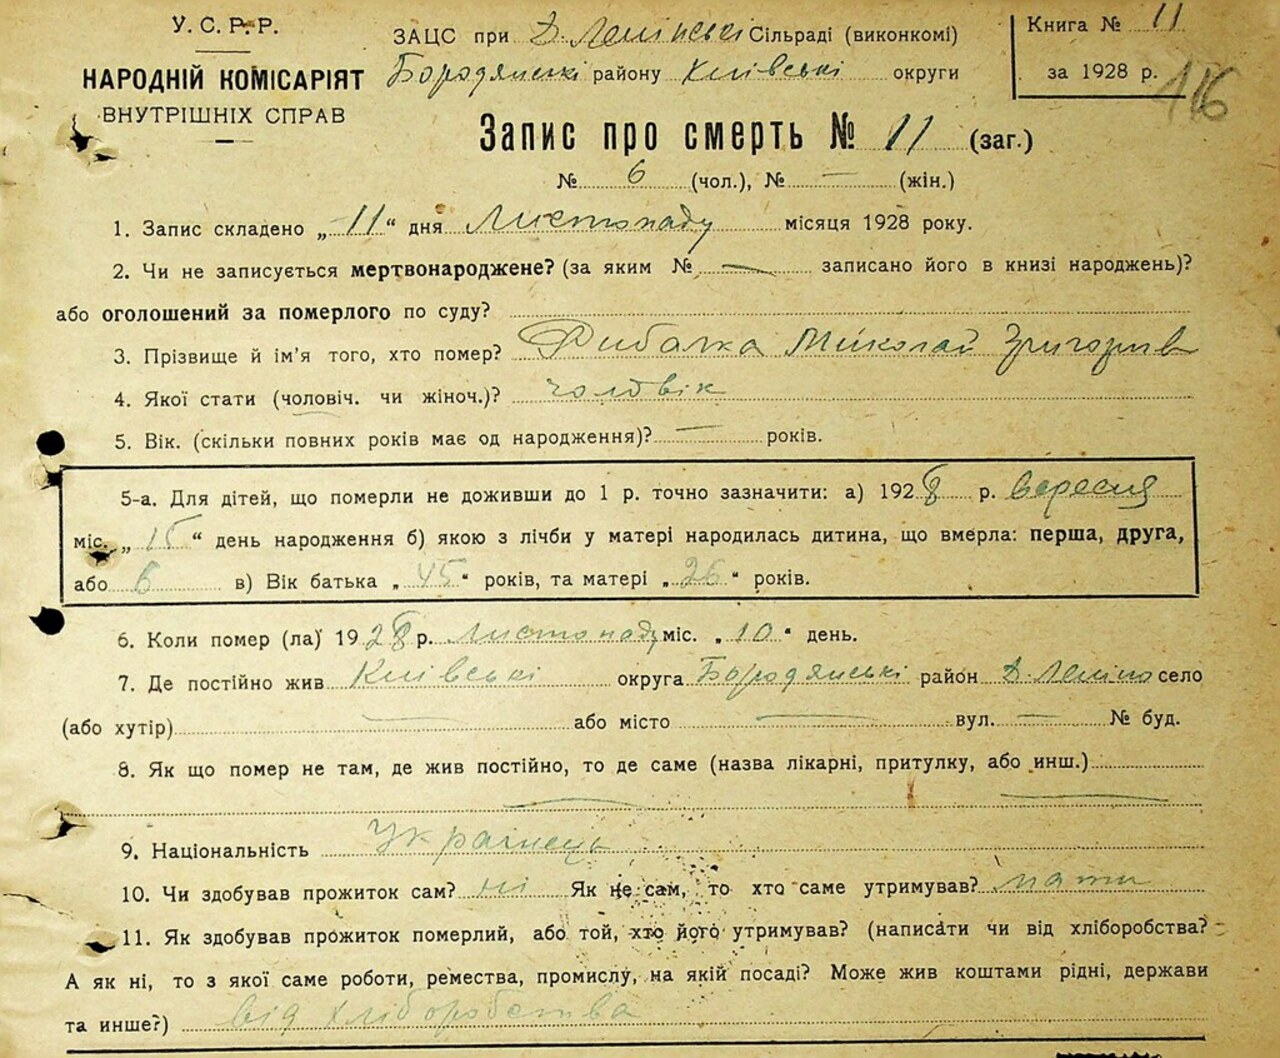 У. С. Р. Р.
НАРОДНІЙ КОМІСАРІЯТ
ВНУТРІШНІХ СПРАВ
ЗАЦС при Д. Ленінські Сільраді (виконкомі)
Бородянські району Київські округи
Книга № 11
за 1928 р.
416
Запис про смерть № 11 (заг.)
№ 6 (чол.), № — (жін.)
1. Запис складено „11“ дня Листопаду місяця 1928 року.
2. Чи не записується мертвонароджене? (за яким № — записано його в книзі народжень)?
або оголошений за померлого по суду?
3. Прізвище й ім'я того, хто помер? Рибалка Миколай Григорів
4. Якої стати (чоловіч. чи жіноч.)? чоловік
5. Вік. (скільки повних років має од народження)? — років.
5-а. Для дітей, що померли не доживши до 1 р. точно зазначити: а) 1928 р. вересня
міс. „15“ день народження б) якою з лічби у матері народилась дитина, що вмерла: перша, друга,
або 6 в) Вік батька „45“ років, та матері „26“ років.
6. Коли помер (ла) 1928 р. листопаду міс. „10“ день.
7. Де постійно жив Київські округа Бородянські район Д. Леніно село
(або хутір) — або місто — вул. — № буд.
8. Як що помер не там, де жив постійно, то де саме (назва лікарні, притулку, або инш.)
— —
9. Національність Українець
10. Чи здобував прожиток сам? ні Як не сам, то хто саме утримував? мати
11. Як здобував прожиток померлий, або той, хто його утримував? (написати чи від хліборобства?
А як ні, то з якої саме роботи, ремества, промислу, на якій посаді? Може жив коштами рідні, держави
та инше?) від хліборобства